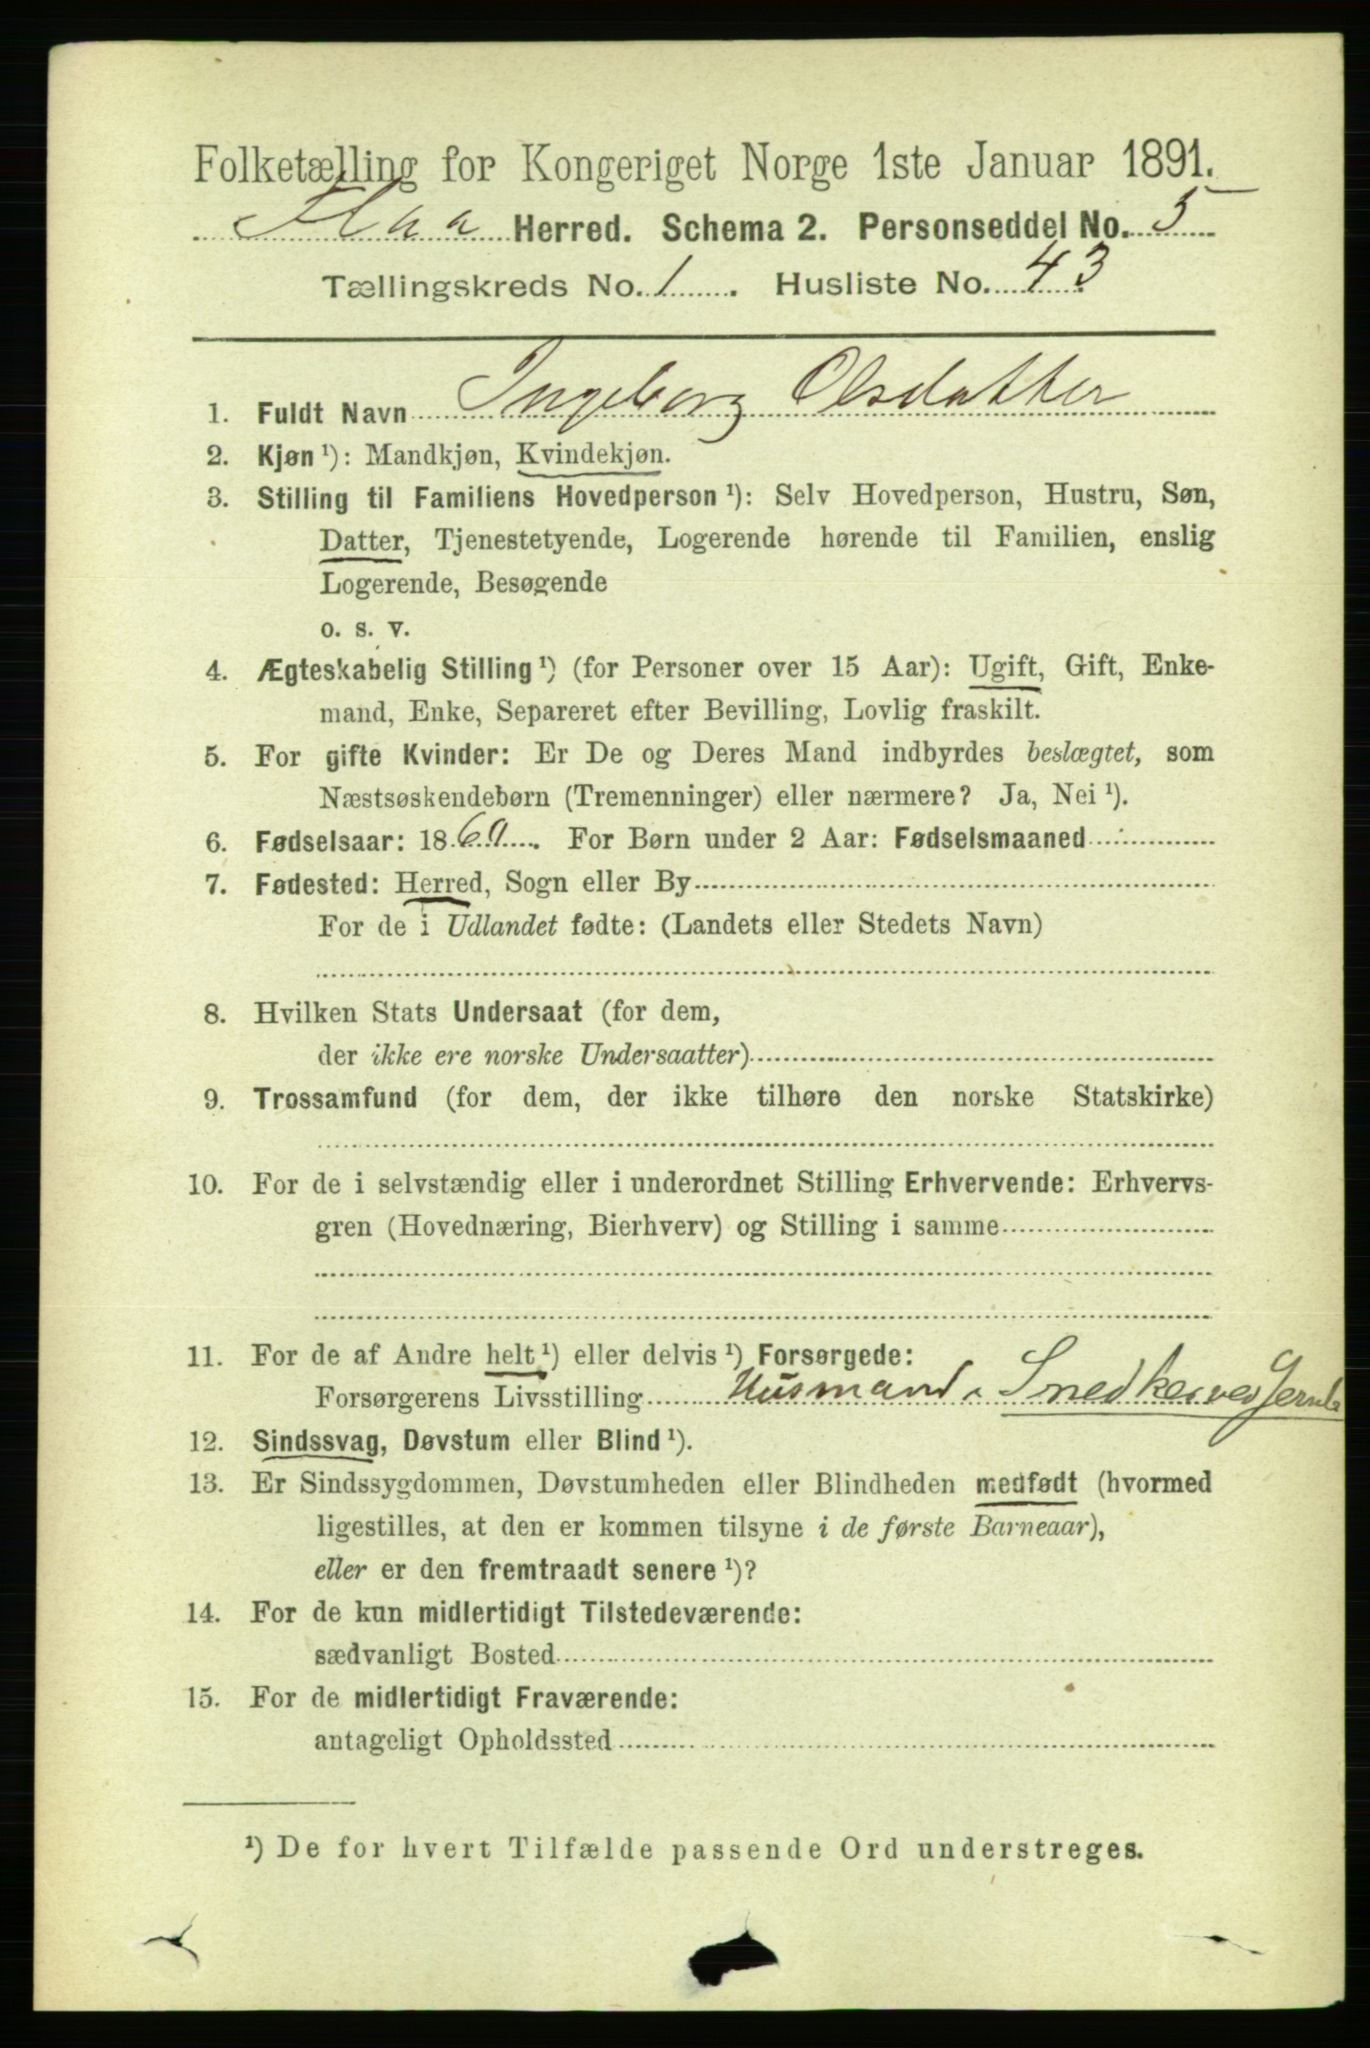 Folketælling for Kongeriget Norge 1ste Januar 1891.
Flaa Herred. Schema 2. Personseddel No. 5
Tællingskreds No. 1. Husliste No. 43
1. Fuldt Navn Ingeborg Olsdatter
2. Kjøn ¹): Mandkjøn, Kvindekjøn.
3. Stilling til Familiens Hovedperson ¹): Selv Hovedperson, Hustru, Søn,
Datter, Tjenestetyende, Logerende hørende til Familien, enslig
Logerende, Besøgende
o. s. v.
4. Ægteskabelig Stilling ¹) (for Personer over 15 Aar): Ugift, Gift, Enke-
mand, Enke, Separeret efter Bevilling, Lovlig fraskilt.
5. For gifte Kvinder: Er De og Deres Mand indbyrdes beslægtet, som
Næstsøskendebørn (Tremenninger) eller nærmere? Ja, Nei ¹).
6. Fødselsaar: 18 . For Børn under 2 Aar: Fødselsmaaned
7. Fødested: Herred, Sogn eller By
For de i Udlandet fødte: (Landets eller Stedets Navn)
8. Hvilken Stats Undersaat (for dem,
der ikke ere norske Undersaatter)
9. Trossamfund (for dem, der ikke tilhøre den norske Statskirke)
10. For de i selvstændig eller i underordnet Stilling Erhvervende: Erhvervs-
gren (Hovednæring, Bierhverv) og Stilling i samme
11. For de af Andre helt ¹) eller delvis ¹) Forsørgede:
Forsørgerens Livsstilling Husmand Snedker ved
12. Sindssvag, Døvstum eller Blind ¹).
13. Er Sindssygdommen, Døvstumheden eller Blindheden medfødt (hvormed
ligestilles, at den er kommen tilsyne i de første Barneaar),
eller er den fremtraadt senere ¹)?
14. For de kun midlertidigt Tilstedeværende:
sædvanligt Bosted
15. For de midlertidigt Fraværende:
antageligt Opholdssted
¹) De for hvert Tilfælde passende Ord understreges.